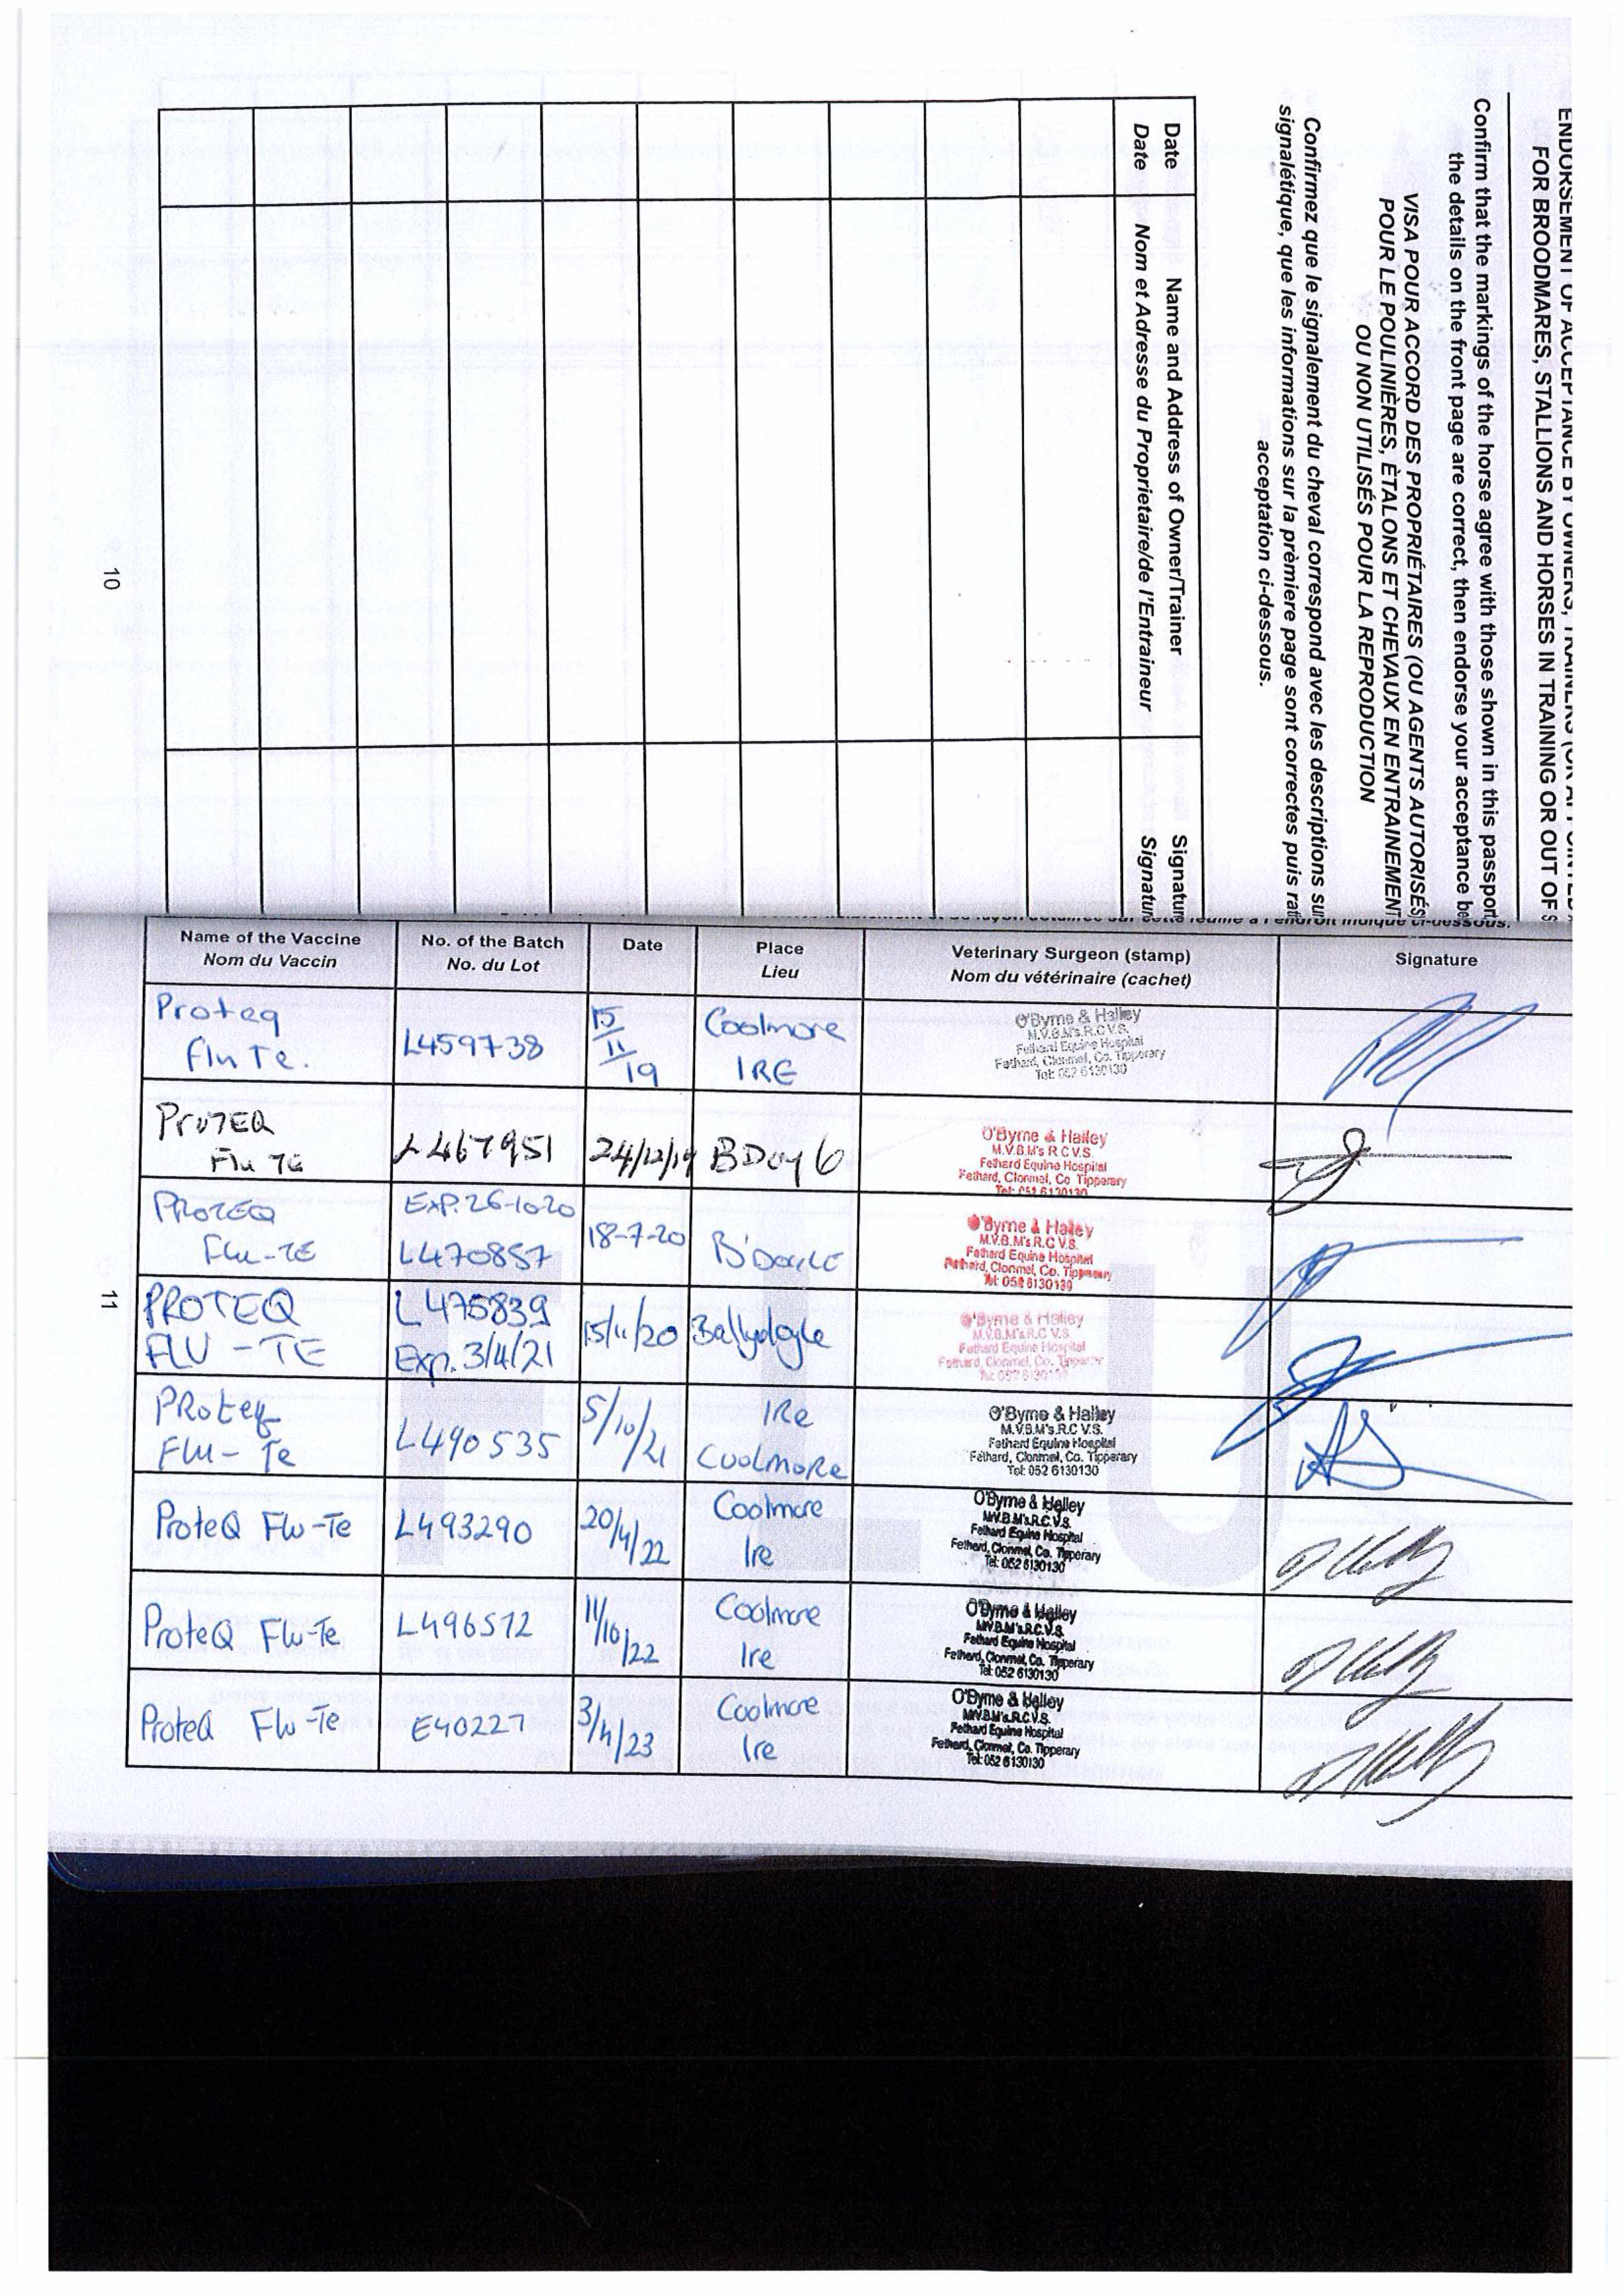 ENDORSEMENT OF ACCEPTANCE BY OWNERS, TRAINERS (OR
FOR BROODMARES, STALLIONS AND HORSES IN TRAINING OR OUT OF
Confirm that the markings of the horse agree with those shown in this passport
the details on the front page are correct, then endorse your acceptance be
VISA POUR ACCORD DES PROPRIÉTAIRES (OU AGENTS AUTORISÉS
POUR LE POULINIÈRES, ÈTALONS ET CHEVAUX EN ENTRAINEMENT
OU NON UTILISÉS POUR LA REPRODUCTION
Confirmez que le signalement du cheval correspond avec les descriptions sur
signalétique, que les informations sur la prèmiere page sont correctes puis rat
acceptation ci-dessous.
Date Name and Address of Owner/Trainer Signature
Date Nom et Adresse du Proprietaire/de l'Entraineur Signature
10
feuille a l'endroit indiqué ci-dessous.
Name of the Vaccine No. of the Batch Date Place Veterinary Surgeon (stamp) Signature
Nom du Vaccin No. du Lot Lieu Nom du vétérinaire (cachet)
Proteq Flu Te. L459738 15/11/19 Coolmore IRE
O'Byrne & Halley
M.V.B.M's.R.C.V.S.
Fethard Equine Hospital
Fethard, Clonmel, Co. Tipperary
Tel: 052 6130130
ProTEQ Flu TE L467951 24/12/19
O'Byrne & Halley
M.V.B.M's R.C.V.S.
Fethard Equine Hospital
Fethard, Clonmel, Co Tipperary
Tel: 052 6130130
PROTEQ Flu-TE Exp. 26-10-20 L470857 18-7-20 B'Doyle
O'Byrne & Halley
M.V.B.M's.R.C.V.S.
Fethard Equine Hospital
Fethard, Clonmel, Co. Tipperary
Tel: 052 6130130
PROTEQ FLU-TE L475839 Exp. 3/4/21 15/11/20 Ballydoyle
O'Byrne & Halley
M.V.B.M's.R.C.V.S.
Fethard Equine Hospital
Fethard, Clonmel, Co. Tipperary
PRoteq Flu-Te L490535 5/10/21 IRe CoolmoRe
O'Byrne & Halley
M.V.B.M's.R.C.V.S.
Fethard Equine Hospital
Fethard, Clonmel, Co. Tipperary
Tel: 052 6130130
ProteQ Flu-Te L493290 20/4/22 Coolmore Ire
O'Byrne & Halley
M.V.B.M's.R.C.V.S.
Fethard Equine Hospital
Fethard, Clonmel, Co. Tipperary
Tel: 052 6130130
ProteQ Flu-Te L496572 11/10/22 Coolmore Ire
O'Byrne & Halley
M.V.B.M's.R.C.V.S.
Fethard Equine Hospital
Fethard, Clonmel, Co. Tipperary
Tel: 052 6130130
ProteQ Flu-Te E40227 Coolmore Ire
O'Byrne & Halley
M.V.B.M's.R.C.V.S.
Fethard Equine Hospital
Fethard, Clonmel, Co. Tipperary
Tel: 052 6130130
11